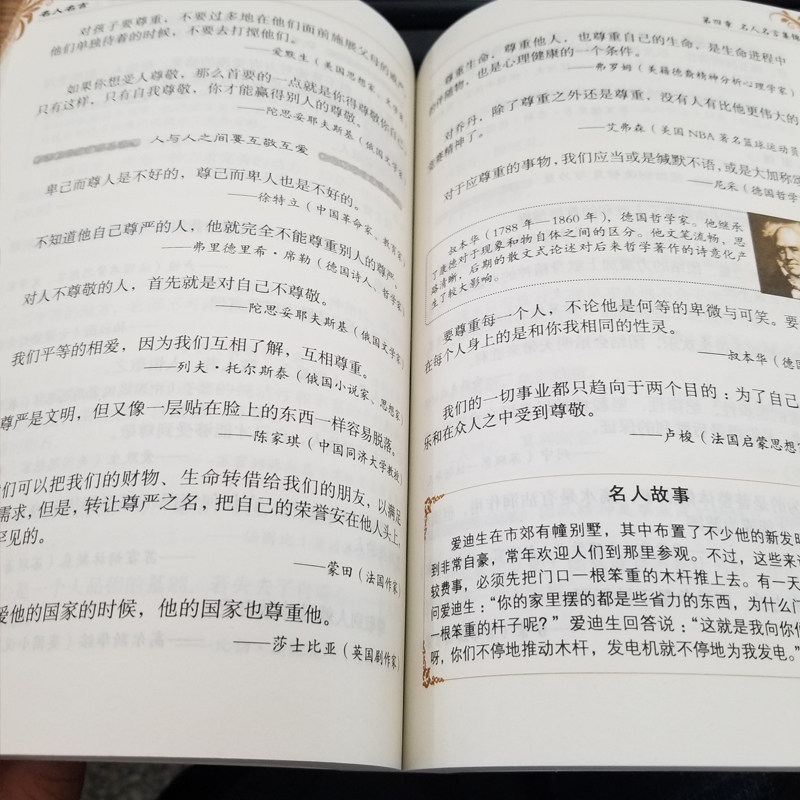 名人名言
对孩子要尊重，不要过多地在他们面前施展父母的威严
他们单独待着的时候，不要去打搅他们。
——爱默生（美国思想家、文学家
如果你想受人尊敬，那么首要的一点就是你得尊敬你自己
只有这样，只有自我尊敬，你才能赢得别人的尊敬。
——陀思妥耶夫斯基（俄国文学家
人与人之间要互敬互爱
卑己而尊人是不好的，尊己而卑人也是不好的。
——徐特立（中国革命家、教育家
不知道他自己尊严的人，他就完全不能尊重别人的尊严。
——弗里德里希·席勒（德国诗人、哲学家
对人不尊敬的人，首先就是对自己不尊敬。
——陀思妥耶夫斯基（俄国文学家
我们平等的相爱，因为我们互相了解，互相尊重。
——列夫·托尔斯泰（俄国小说家、思想家
尊严是文明，但又像一层贴在脸上的东西一样容易脱落。
——陈家琪（中国同济大学教授
们可以把我们的财物、生命转借给我们的朋友，以满足
需求，但是，转让尊严之名，把自己的荣誉安在他人头上，
罕见的。
——蒙田（法国作家
爱他的国家的时候，他的国家也尊重他。
——莎士比亚（英国剧作家
第四章 名人名言集锦
尊重生命，尊重他人，也尊重自己的生命，是生命进程中
伴随物，也是心理健康的一个条件。
——弗罗姆（美籍德裔精神分析心理学家）
对乔丹，除了尊重之外还是尊重，没有人有比他更伟大的
竞赛精神了。
——艾弗森（美国NBA著名篮球运动员
对于应尊重的事物，我们应当或是缄默不语，或是大加称
——尼采（德国哲学
叔本华（1788年—1860年），德国哲学家。他继承
了康德对于现象和物自体之间的区分。他文笔流畅，思
路清晰，后期的散文式论述对后来哲学著作的诗意化产
生了较大影响。
要尊重每一个人，不论他是何等的卑微与可笑。要
在每个人身上的是和你我相同的性灵。
——叔本华（德国
我们的一切事业都只趋向于两个目的：为了自己
乐和在众人之中受到尊敬。
——卢梭（法国启蒙思想
名人故事
爱迪生在市郊有幢别墅，其中布置了不少他的新发明
到非常自豪，常年欢迎人们到那里参观。不过，这些来
较费事，必须先把门口一根笨重的木杆推上去。有一天
问爱迪生：“你的家里摆的都是些省力的东西，为什么门
一根笨重的杆子呢？”爱迪生回答说：“这就是我向你
呀，你们不停地推动木杆，发电机就不停地为我发电。”